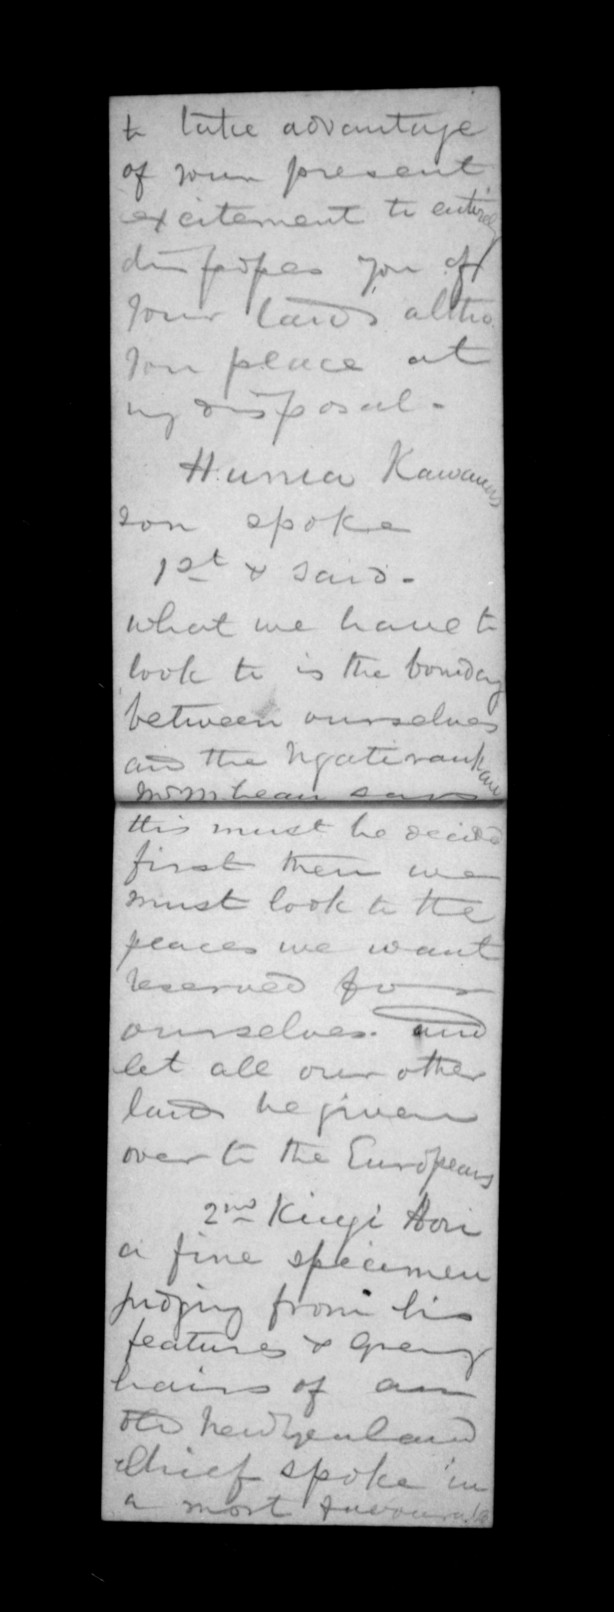 to take advantage
of your present
excitement to entirely
dispopes you of
your lands altho
you place at
my disposal -
Hunia Kawana's
son spoke
1st & said -
what we have to
look to is the bounday
between ourselves
and the Ngatiraukau
Mr McLean says
this must be decided
first then we
must look to the
places we want
reserved for
ourselves. and
let all our other
lands be given
over to the Europeans
2nd Kingi Hori
a fine specimen
judging from his
features & grey
hairs of an
old New Zealand
Chief spoke in
a most favourable